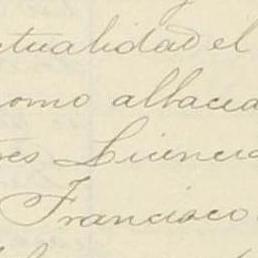 ctualidad el
como albacea
res Licencia
Francisco